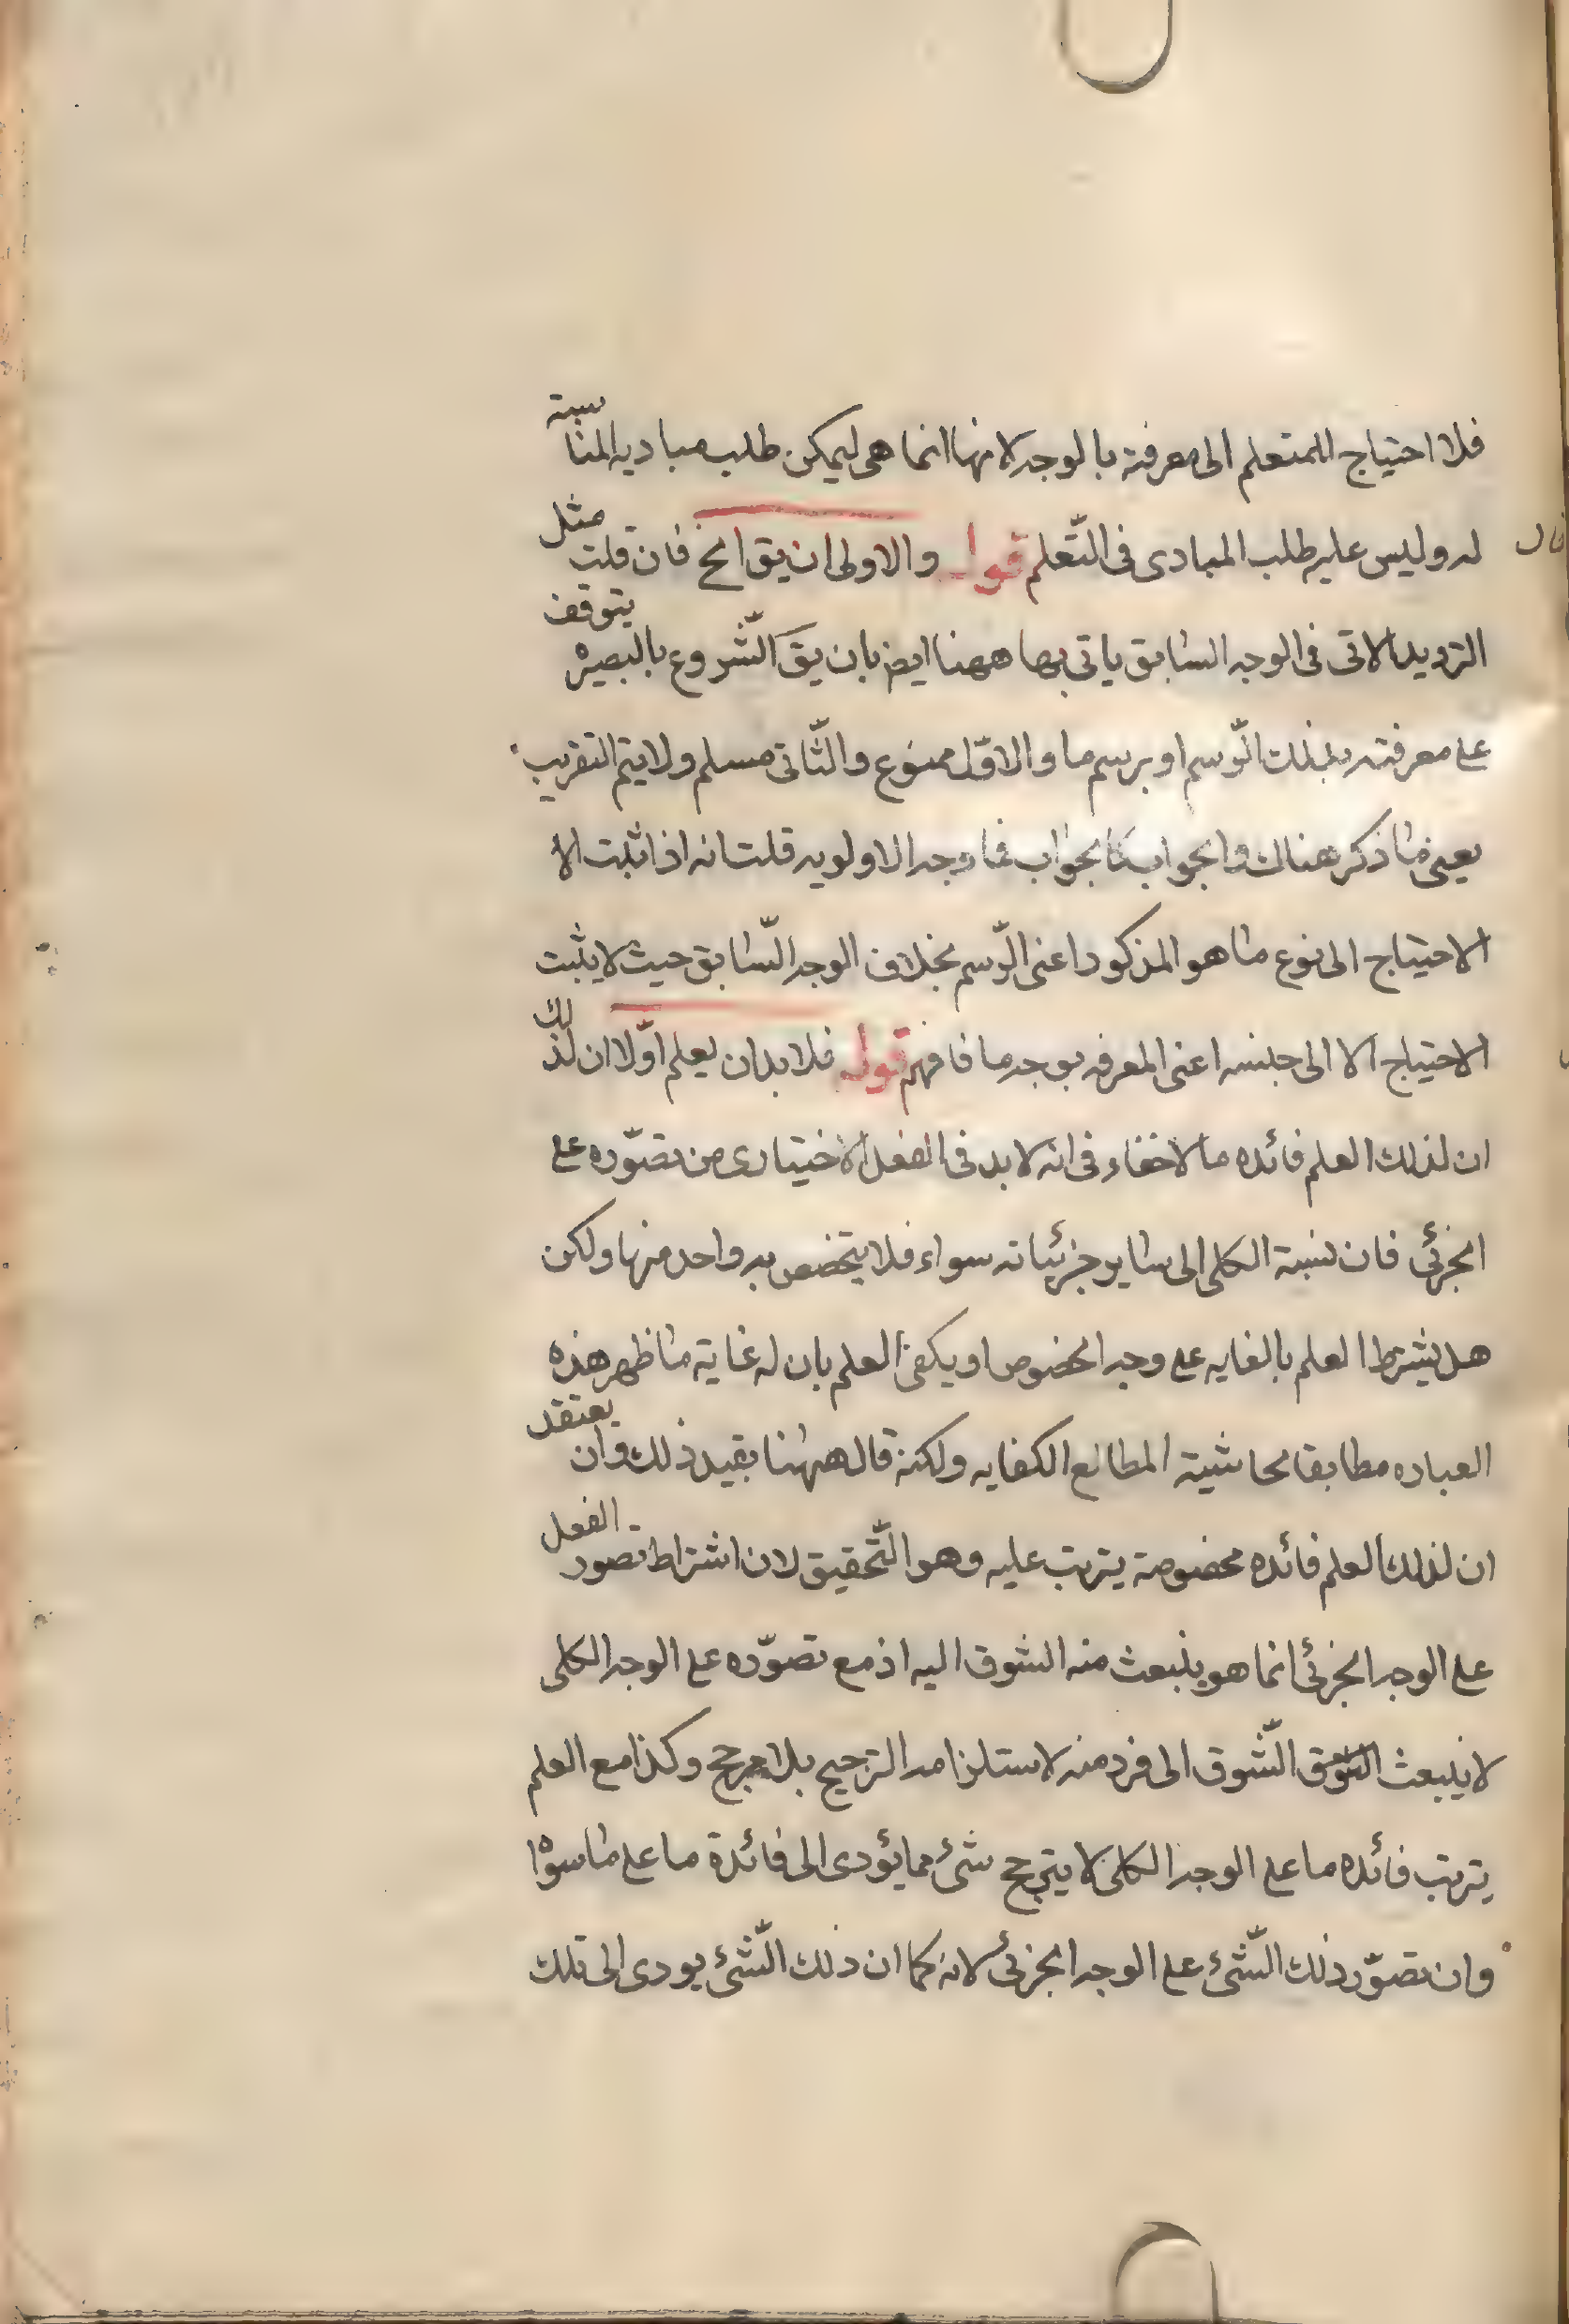 فلا احتياج للمتعلم الى معرفته بالوجه لانها انما هى ليمكن طلب مباديه المناسبة
له وليس عليه طلب المبادى فى التّعلم قوله والاولى ان يق الخ فان قلت مثل
الترديد الاتى فى الوجه السابق ياتى بها ههنا ايض بان يق الشّروع بالبصيرة يتوقف
على معرفته بذلك الرّسم او برسم ما والاوّل ممنوع والثّانى مسلم ولا يتم التقريب
يعنى ما ذكر هناك والجواب كالجواب فما وجه الاولويه قلت انه اذا ثبت الا
الاحتياج الى نوع ما هو المذكور اعنى الرّسم بخلاف الوجه السّابق حيث لا يثبت
الاحتياج الا الى جنسه اعنى المعرفه بوجه ما فافهم قوله فلا بد ان يعلم اوّلا ان لذلك
ان لذلك العلم فائده ما لا خفاء فى انه لا بد فى الفعل الاختيارى من تصوّره على
الجزئى فان نسبة الكلى الى ساير جزئياته سواء فلا يتخصص به واحد منها ولكن
هل يشترط العلم بالغايه على وجه الخصوص او يكفى العلم بان له غاية ما ظهر هذه
العباره مطابقا لحاشية المطالع الكفايه ولكنه قال ههنا بقيد ذلك وان يعتقد
ان لذلك العلم فائده مخصوصة يترتب عليه وهو التّحقيق لان اشتراط تصور الفعل
على الوجه الجزئى انما هو ينبعث منه الشوق اليه اذ مع تصوّره على الوجه الكلى
لا ينبعث الشّوق الى فرد منه لاستلزامه الترجيح بلا مرجح وكذا مع العلم
يترتب فائده ما على الوجه الكلى لا يترجح شئ مما يؤدى الى فائدة ما على ما سواه
وان تصوّر ذلك الشّئ على الوجه الجزئى لانه كما ان ذلك الشّئ يودى الى تلك